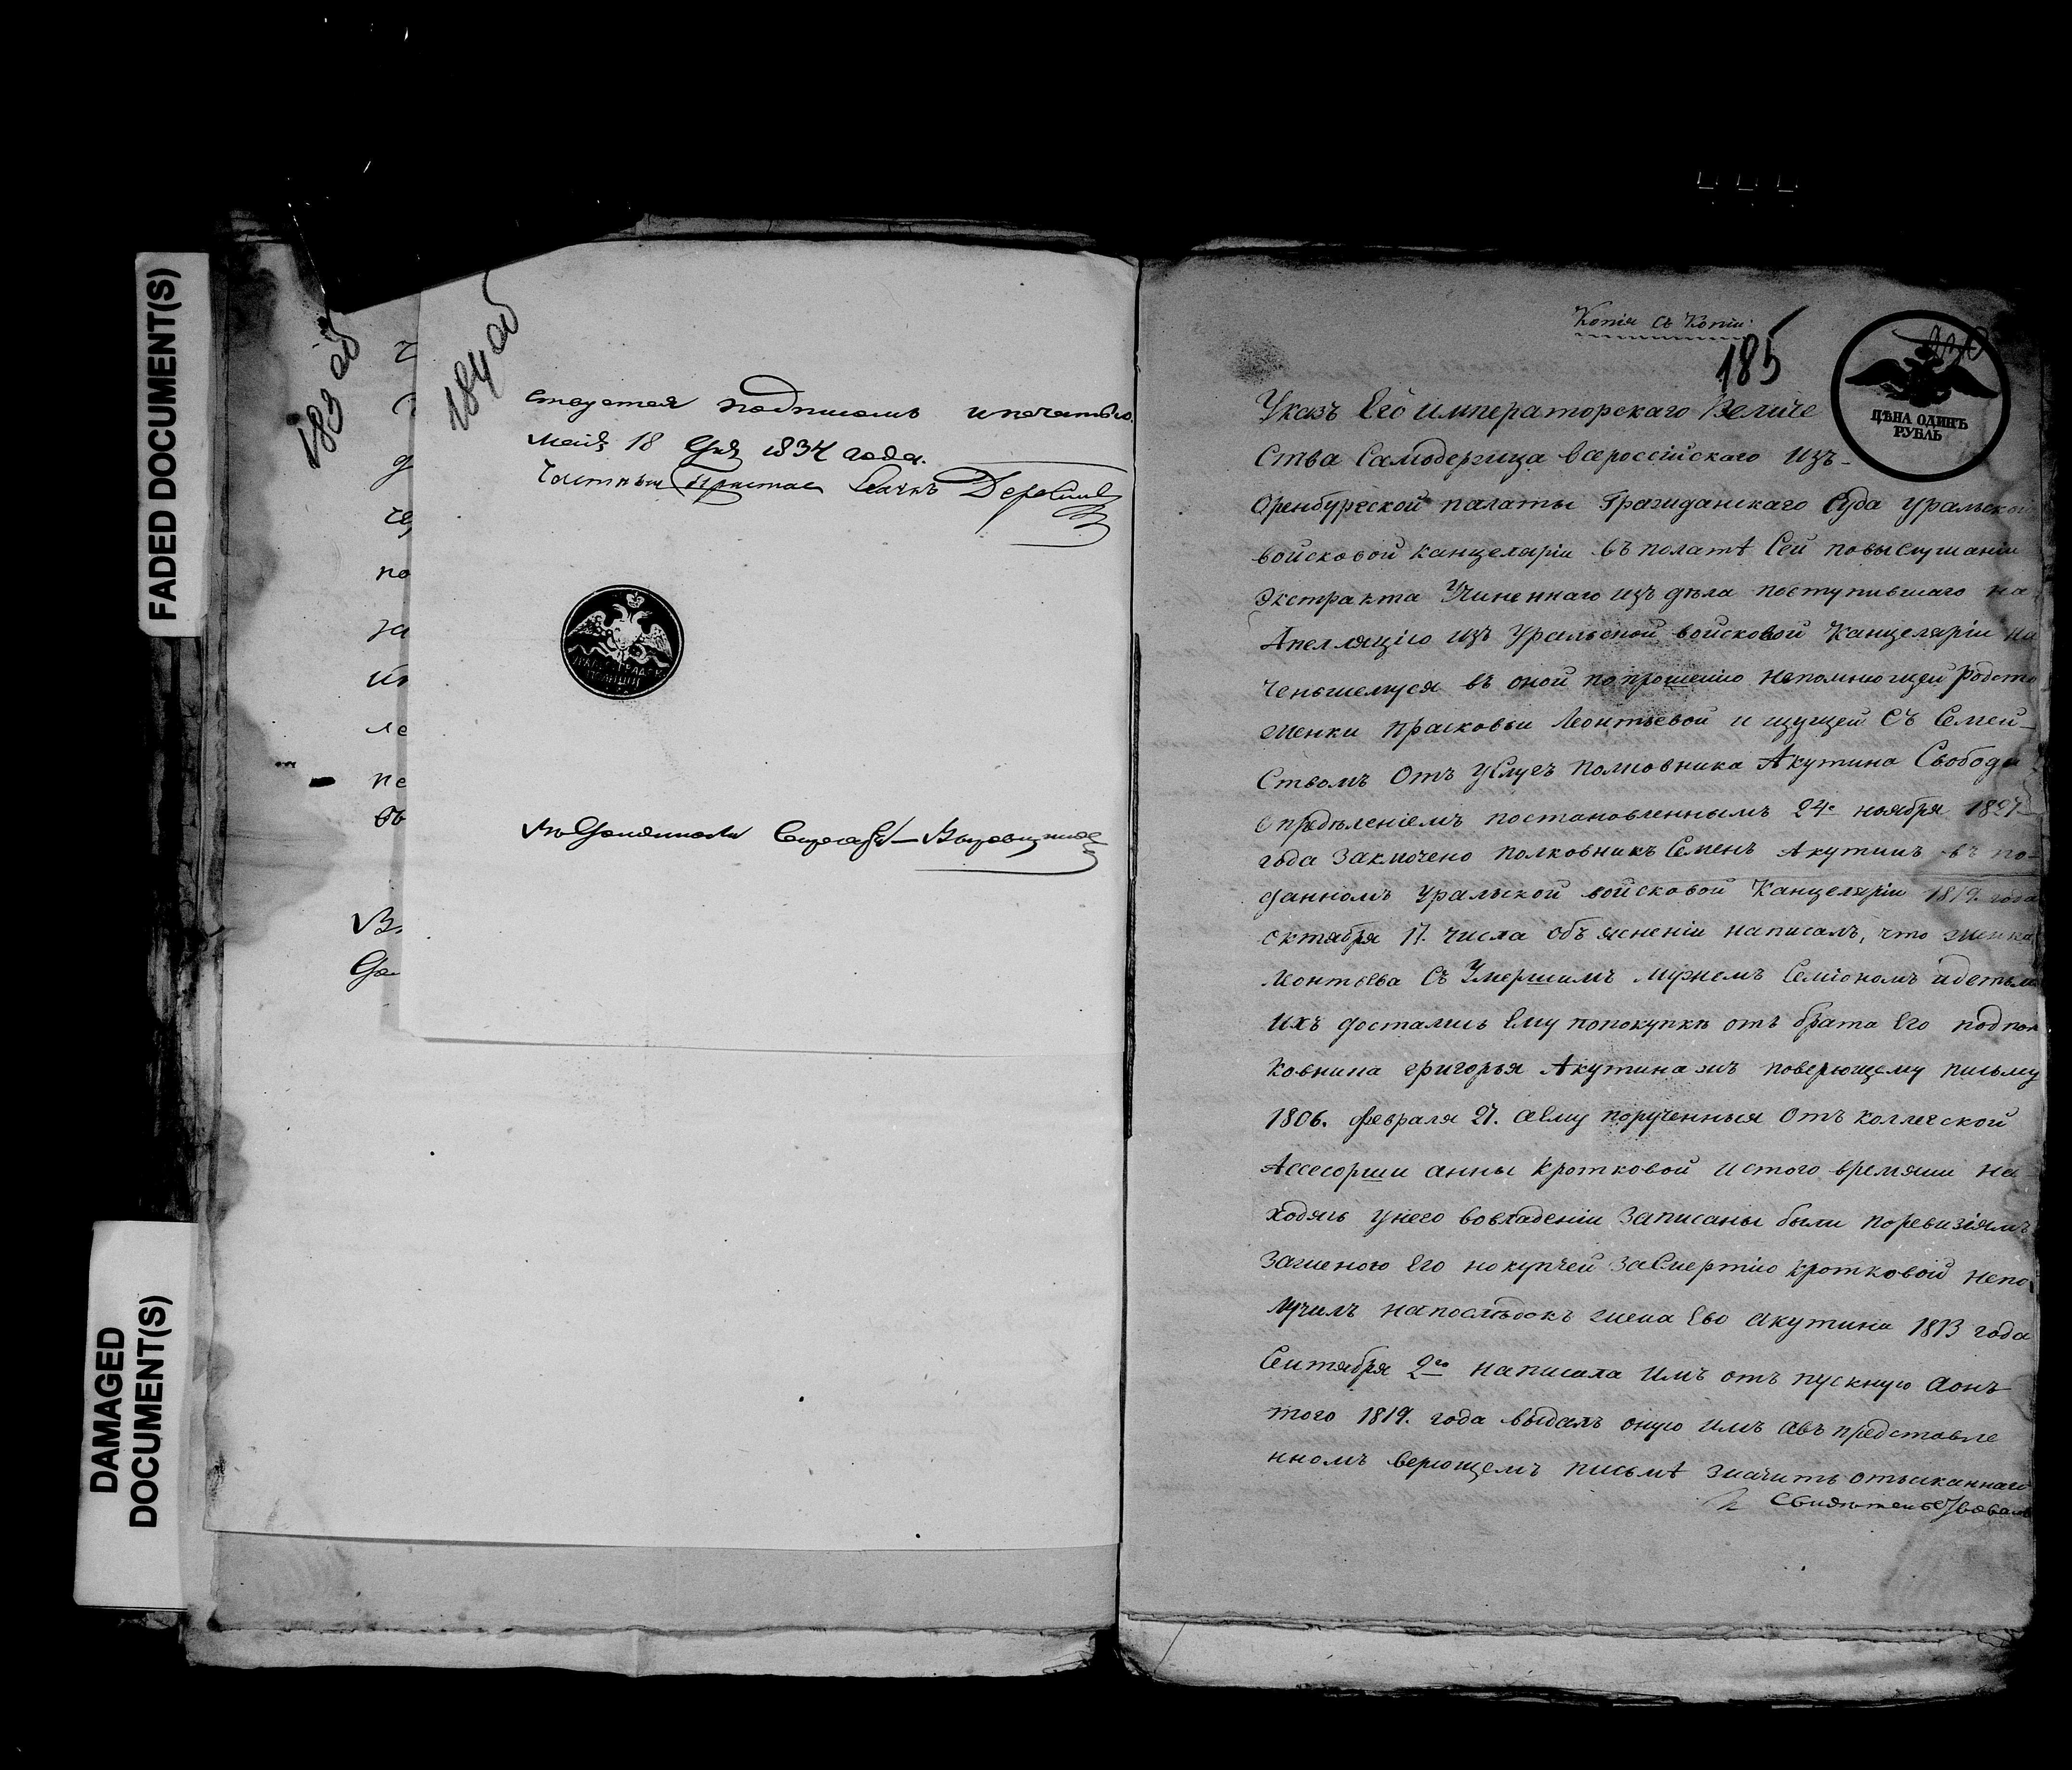 FADED DOCUMENT(S)
DAMAGED
DOCUMENT(S)
183 об
184 об
ствуется подписомъ и печатью.
Маія 18 дня 1834 года.
Частный Приставъ
Въ должности
Копія съ Копіи.
185
ЦѢНА ОДИНЪ
РУБЛЬ
Указъ Его императорскаго Величе
Ства Самодержца всероссійскаго Изъ-
Оренбургской палаты Гражданскаго Суда Уральской
войсковой канцеляріи въ полатѣ Сей повыслушаніи
Экстракта Учиненнаго изъ дѣла поступившаго на
Апелляцію изъ Уральской войсковой Канцеляріи на
ченьшемуся въ оной попрошенію непомнющей родст
женки прасковьи Леонтьевой ищущей Съ Семей-
Ствомъ Отъ услугъ полковника Акутина Свободы
Опредѣленіемъ постановленнымъ 24е ноября 1827
года заключено полковникъ Семенъ Акутинъ въ по-
данномъ Уральской войсковой Канцеляріи 1819 года
октября 17. числа объясненіи написалъ, что женка
Леонтьева Съ Умершимъ мужемъ Семіономъ идетьми
Ихъ достались Ему попокупкѣ отъ брата Его подпол
Ковника григорья Акутина поверющему письму
1806. февраля 27. аему порученныя Отъ коллегской
Ассесорши анны кротковой истого времяни на
ходясь унего вовладеніи Записаны были поревизіямъ
Заженою Его нокупчей Засмертію кротковой непо
лучилъ напослѣдокъ жена Ево Акутина 1813 года
Сентября 2го написала Имъ отъ пускную Аонъ
того 1819. года выдалъ оную имъ авъ представле
нномъ верющемъ письмѣ значитъ отысканнаго
Свидѣтельствовалъ